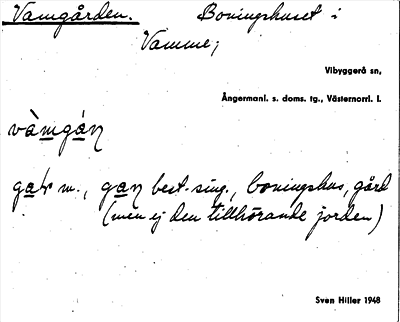 Vamgården. Boningshuset i
Vamme;
Vibyggerå sn,
Ångermanl. s. doms. tg., Västernorrl. l.
vàmgán
gaɽ m., gan best. sing., boningshus, gård
(men ej den tillhörande jorden)
Sven Hiller 1948